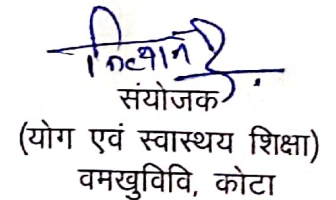 संयोजक
(योग एवं स्वास्थय शिक्षा)
वमखुविवि, कोटा